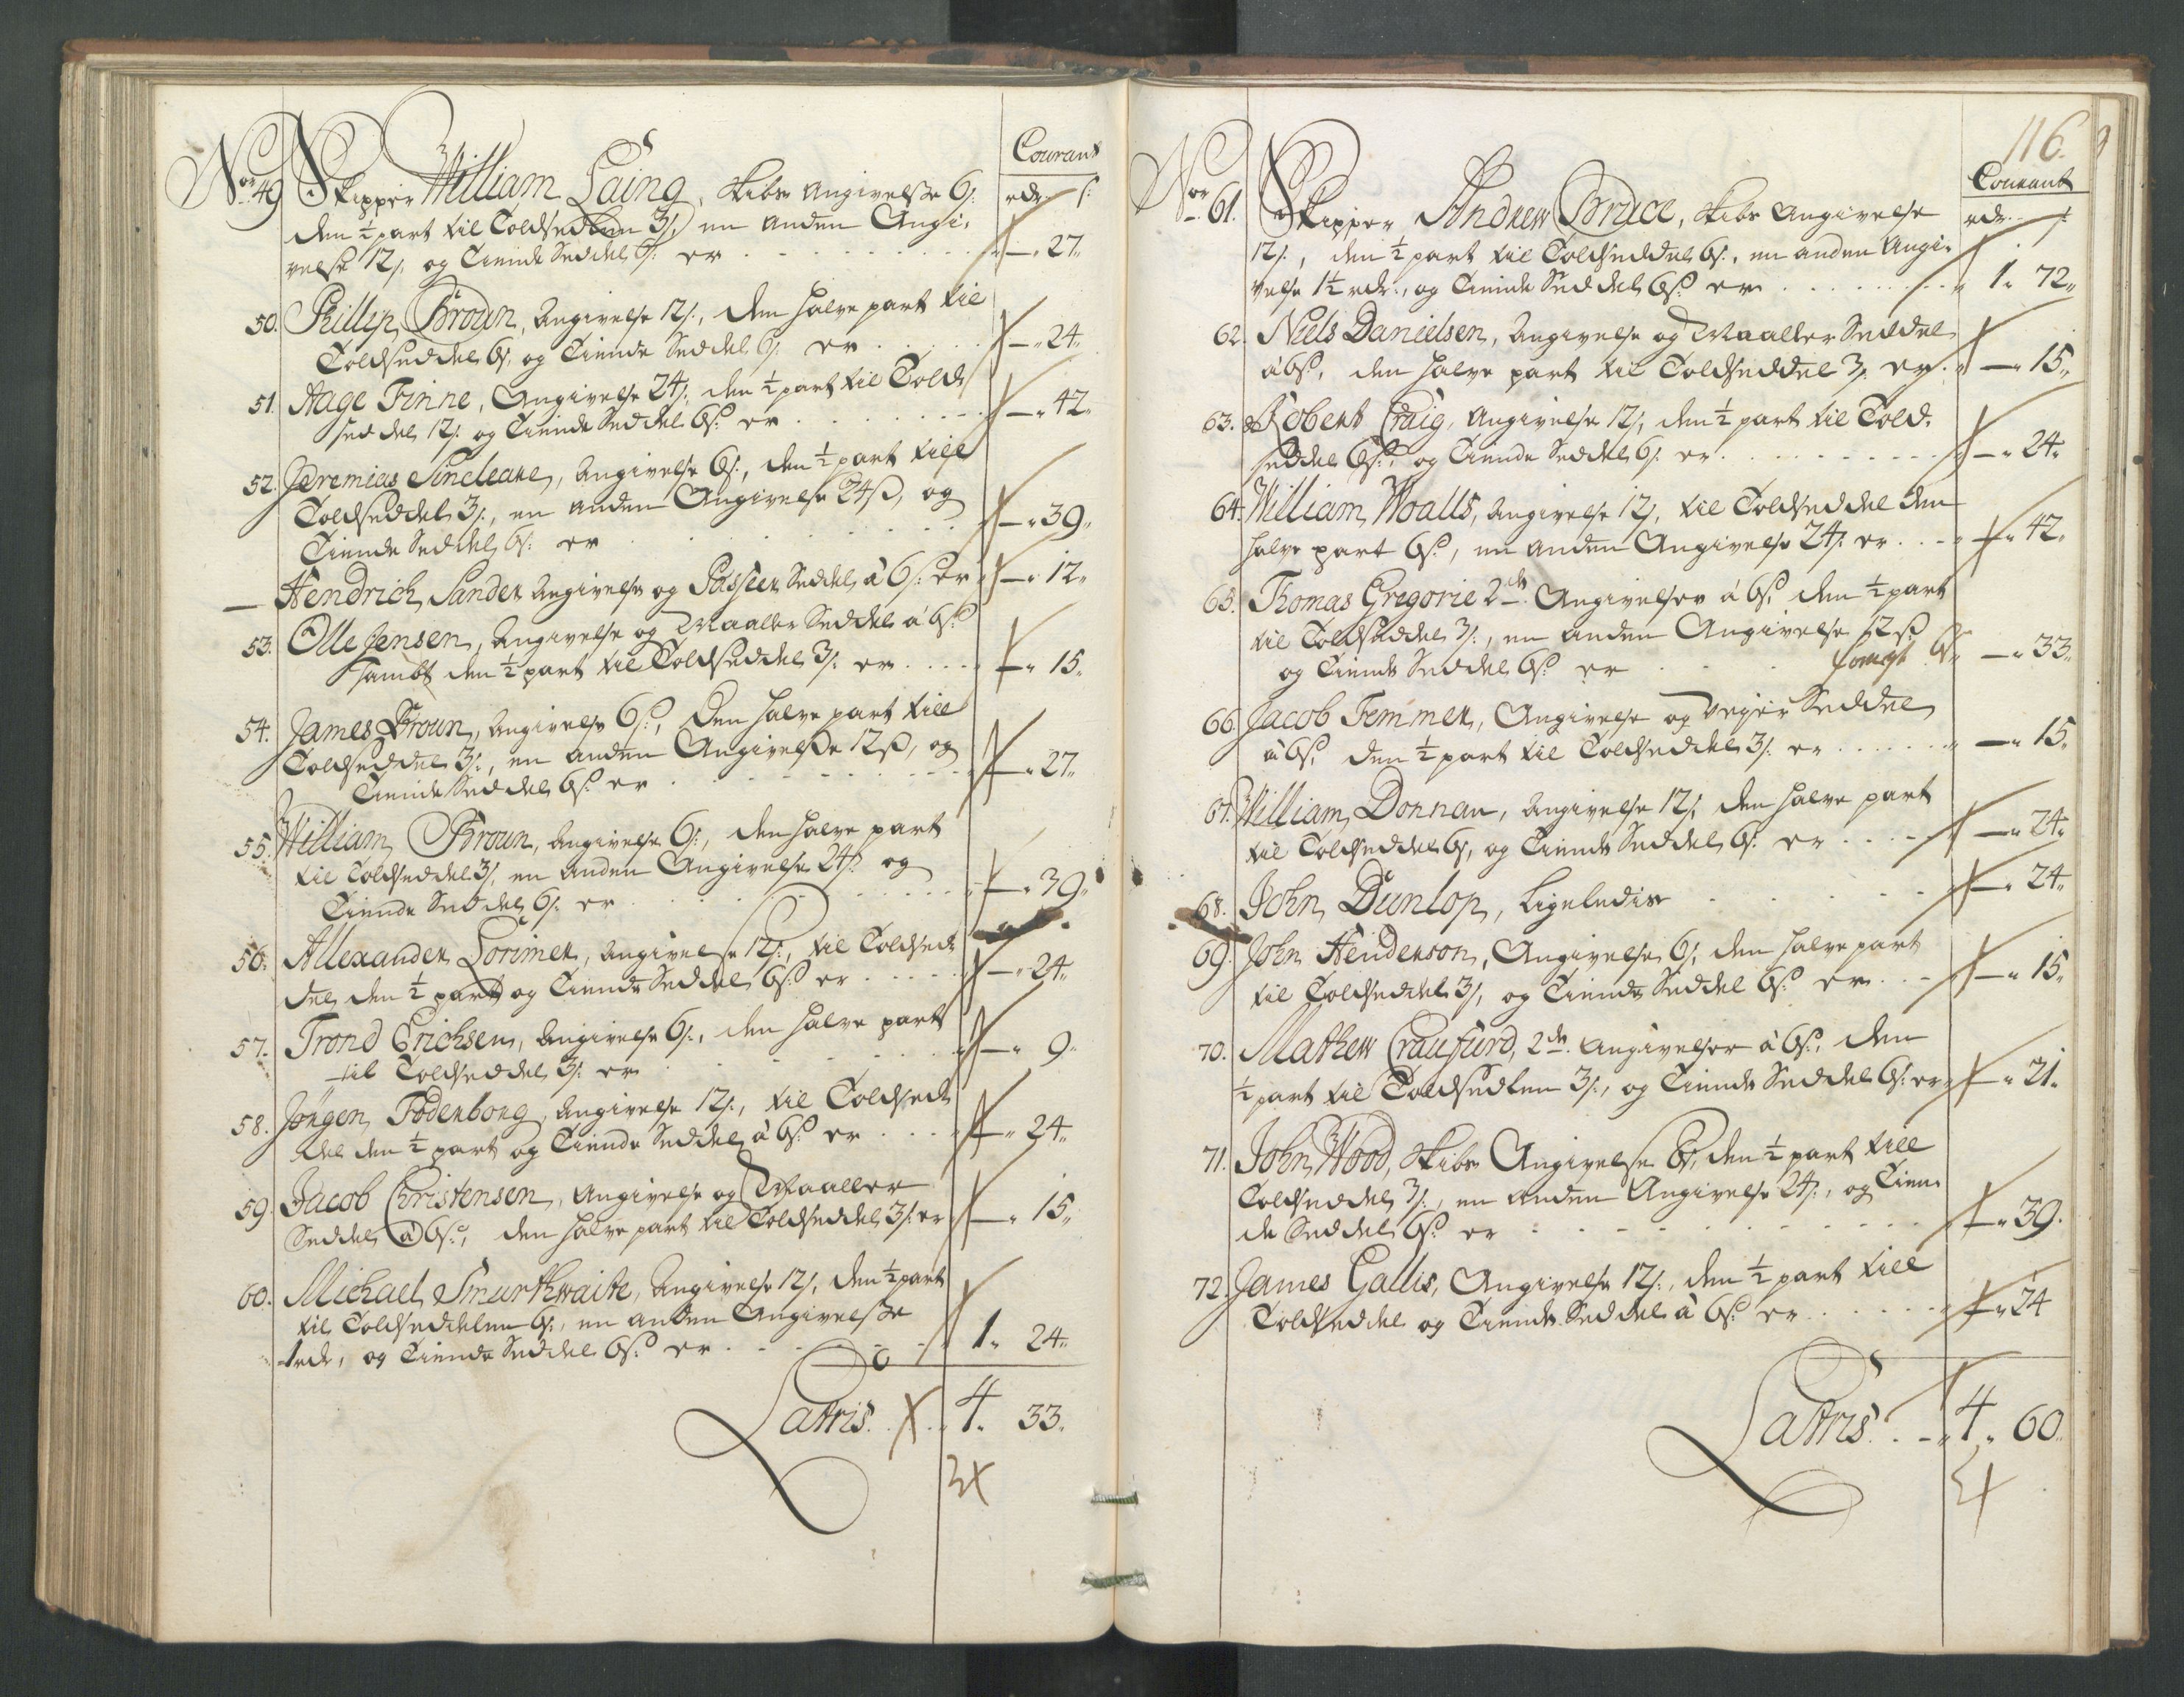 Courant
No. 49 Skipper William Laing, Skibs Angivelsse 6 s:
rdr s:
den ½ part til Toldsedlen 3 s, en anden Angi-
velse 12 s. og Tiende Seddel 6 s: er — 27.
50. Phillip Broun, Angivelse 12 s:, den halve part til
Toldseddel 6 s, og Tiende Seddel 6 s. er — 24.
51. Aage Finne, Angivelse 24 s, den ½ part til Told
seddel 12 s. og Tiende Seddel 6 s. er — 42.
52. Jeremias Sincleare, Angivelse 6 s:, den ½ part till
Toldseddel 3 s:, en anden Angivelse 24 ß, og
Tiende Seddel 6 s: er — 39.
— Hendrich Sander Angivelse og Passeer Seddel á 6 s: er — 12.
53. Olle Jensen, Angivelse og Maaller Seddel á 6 s:
sambt den ½ part til Toldseddel 3 s: er — 15.
54. James Broun, Angivelse 6 s:, den halve part till
Toldseddel 3 s:, en anden Angivelse 12 ß, og
Tiende Seddel 6 s: er — 27.
55. William Broun, Angivelse 6 s:, den halve part
til Toldseddel 3 s, en anden Angivelse 24 ß og
Tiende Seddel 6 s. er — 39.
56. Allexander Lorimer, Angivelse 12 s:, til Toldsed-
del den ½ part og Tiende Seddel 6 s: er — 24.
57. Trond Erichsen, Angivelse 6 s:, den halve part
til Toldseddel 3 s: er — 9.
58. Jörgen Föderborg, Angivelse 12 s:, til Toldsed-
del den ½ part og Tiende Seddel á 6 s: er — 24.
59. Jacob Christensen, Angivelse og Maaller
Seddel á 6 s:, den halve part til Toldseddel 3 s: er — 15.
60. Michael Smurthwaite, Angivelse 12 s, den ½ part
til Toldseddelen 6 s:, en anden Angivelsse
1 rdr, og Tiende Seddel 6 s: er 1. 24.
Latris. 4. 33.
116.
Courant
No. 61. Skipper Andrew Bruce, Skibs Angivelse
rdr. s:
12 s:, den ½ part til Toldseddel 6 s:, en anden Angi-
velse 1½ rdr:, og Tiende Seddel 6 s: er 1. 72.
62. Niels Danielsen, Angivelse og Maaller Seddel
á 6 s:, den halve part til Toldseddel 3 s: er — 15.
63. Robert Craig, Angivelse 12 s, den ½ part til Told-
seddel 6 s:, og Tiende Seddel 6 s. er — 24.
64. William Woalls, Angivelse 12 s, til Toldseddel den
halve part 6 s:, en anden Angivelse 24 s: er — 42.
65. Thomas Gregorie 2de Angivelser á 6 s: den ½ part
til Toldseddel 3 s:, en anden Angivelse 12 ß
og Tiende Seddel 6 s: er — 33.
66. Jacob Temmer, Angivelse og Vejer Seddel
á 6 s, den ½ part til Toldseddel 3 s: er — 15.
67. William Donnan, Angivelse 12 s, den halve part
til Toldseddel 6 s, og Tiende Seddel 6 s: er — 24.
68. John Dunlop, Ligeledis — 24.
69. John Henderson, Angivelse 6 s, den halve part
til Toldseddel 3 s, og Tiende Seddel 6 s: er — 15.
70. Mathew Craufurd, 2de Angivelser á 6 s:, den
½ part til Toldsedlen 3 s:, og Tiende Seddel 6 s: er — 21.
71. John Wood, Skibs Angivelse 6 s, den ½ part till
Toldseddel 3 s:, en anden Angivelse 24 s:, og Tien-
de Seddel 6 s: er — 39.
72. James Gallis, Angivelse 12 s:, den ½ part till
Toldseddel og Tiende Seddel á 6 s: er — 24
Latris. 4. 60.